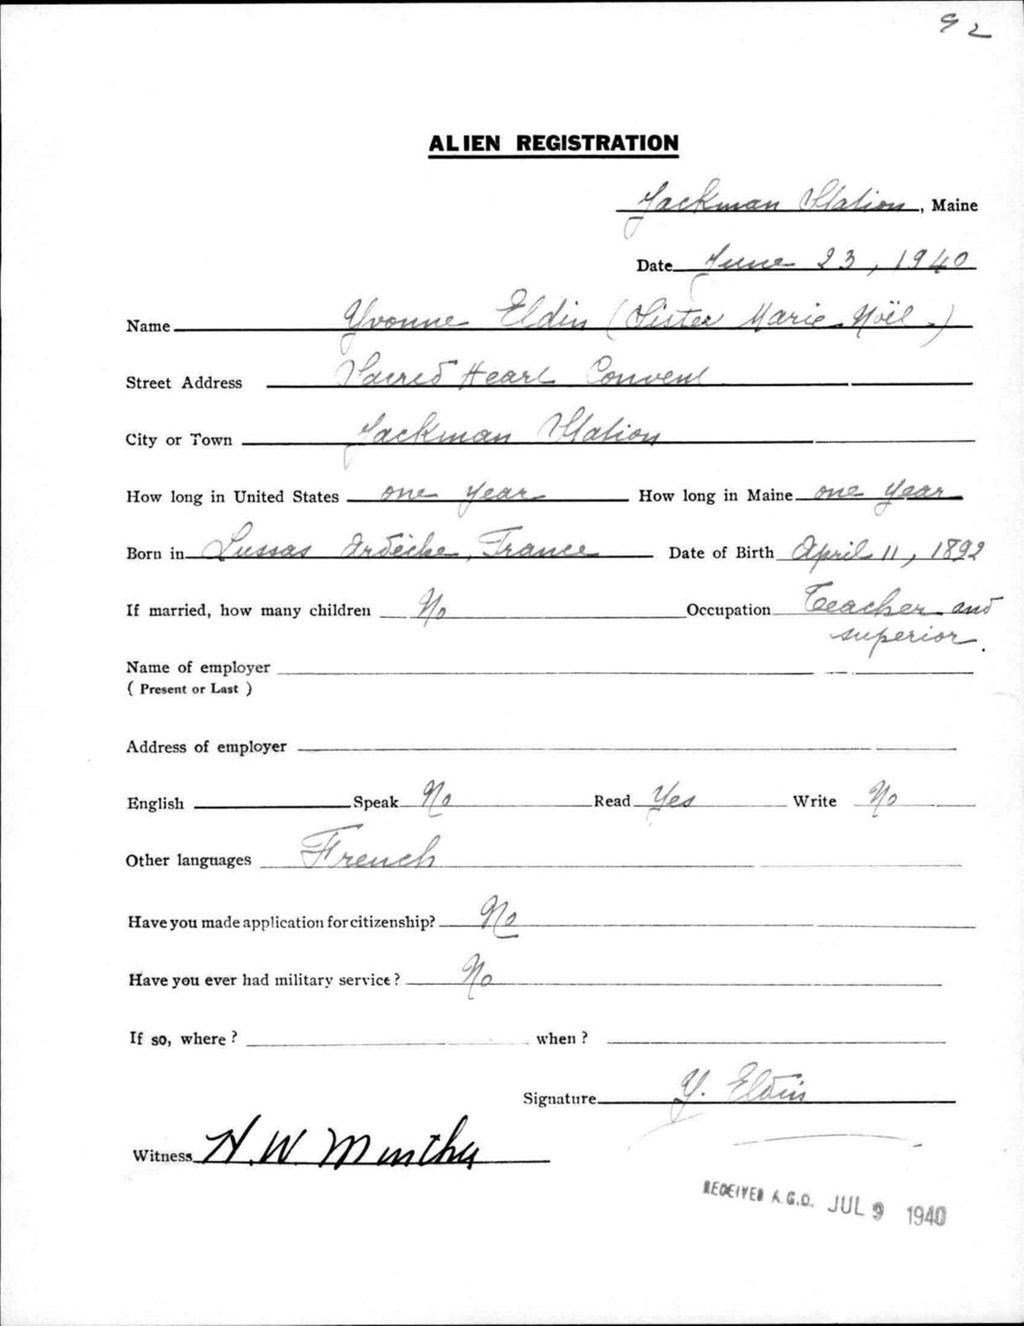 92
ALIEN REGISTRATION
Jackman Station, Maine
Date June 23, 1940
Name Yvonne Eldin (Sister Marie Noël.)
Street Address Sacred Heart Convent
City or Town Jackman Station
How long in United States one year How long in Maine one year
Born in Lussas Ardèche, France Date of Birth April 11, 1892
If married, how many children No Occupation Teacher and
superior.
Name of employer
( Present or Last )
Address of employer
English Speak No Read Yes Write No
Other languages French
Have you made application for citizenship? No
Have you ever had military service? No
If so, where? when?
Signature Y. Eldin
Witness H. W.
RECEIVED A.G.O. JUL 9 1940